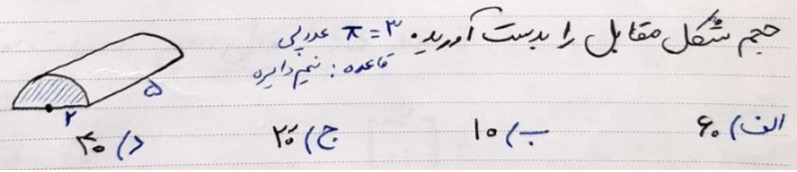 حجم شکل مقابل را بدست آورید. π = ۳ عدد پی
قاعده : نیم دایره
۵
۲
الف) ۶۰ ب) ۱۰ ج) ۲۰ د) ۳۰